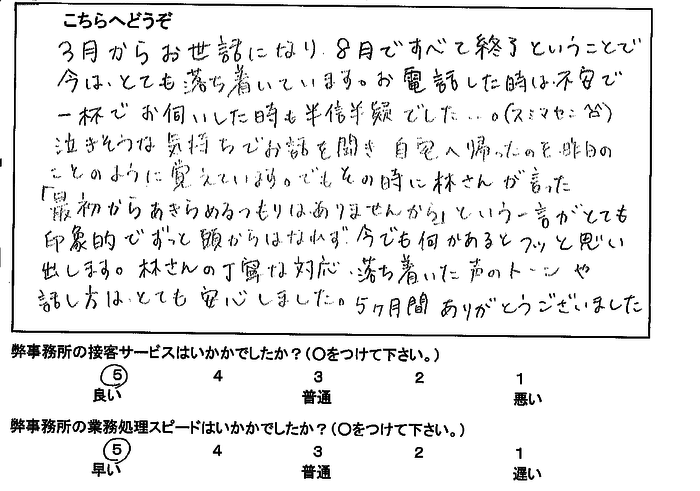 こちらへどうぞ
3月からお世話になり、8月ですべて終了ということで
今は、とても落ち着いています。お電話した時は、不安で
一杯でお伺いした時も半信半疑でした…。(スミマセン
泣きそうな気持ちでお話を聞き 自宅へ帰ったのを、昨日の
ことのように覚えています。でもその時に林さんが言った
「最初からあきらめるつもりはありませんから」という一言がとても
印象的でずっと頭からはなれず、今でも何かあるとフッと思い
出します。林さんの丁寧な対応、落ち着いた声のトーンや
話し方は、とても安心しました。5ヶ月間 ありがとうございました
弊事務所の接客サービスはいかかでしたか?(〇をつけて下さい。)
5 4 3 2 1
良い 普通 悪い
弊事務所の業務処理スピードはいかかでしたか?(〇をつけて下さい。)
5 4 3 2 1
早い 普通 遅い